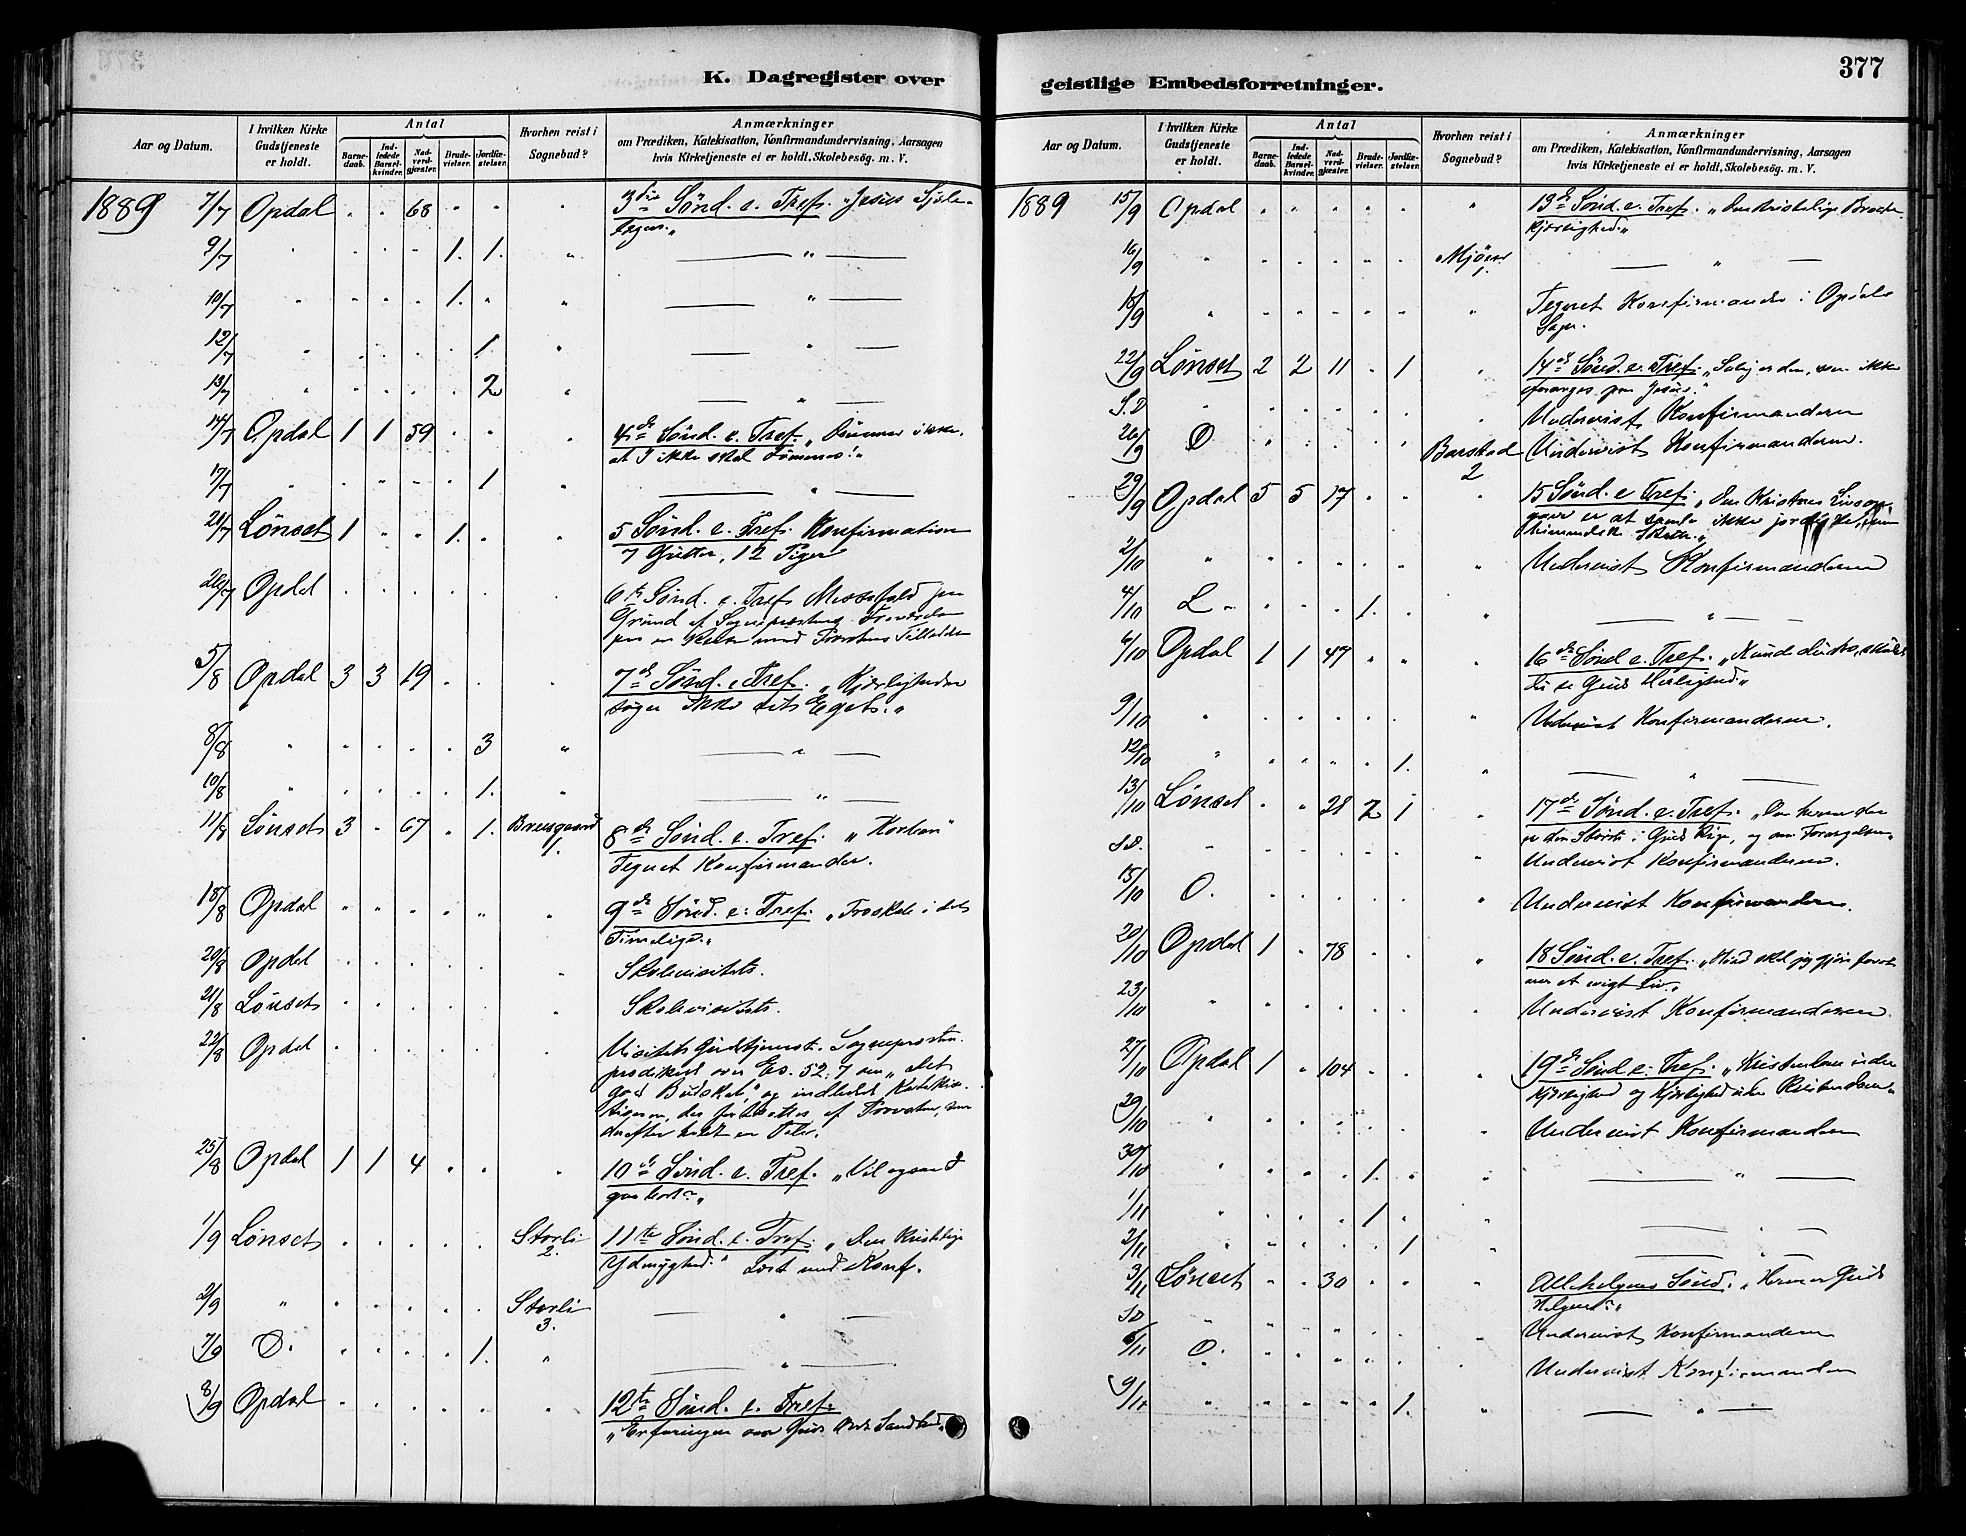 377
K. Dagregister over
geistlige Embedsforretninger.
Aar og Datum.
I hvilken Kirke
Gudstjeneste
er holdt.
Antal
Barne-
daab.
Ind-
ledede
Barsel-
kvinder.
Nad-
verd-
gjæster.
Brude-
vielser.
Jordfæ-
stelser.
Hvorhen reist i
Sognebud?
Anmærkninger
om Prædiken, Katekisation, Konfirmandundervisning, Aarsagen
hvis Kirketjeneste ei er holdt, Skolebesög. m. V.
1889 7/7 Opdal " " 68 " " " 3die Sönd. e. Tref. "Jesus Sjæle-
9/7 " " " " 1. 1. " — " —
10/7 " " " " 1. " " — " —
12/7 " " " " " 1 " — " —
13/7 " " " " " 2 " — " —
14/7 Opdal 1 1 59 " " " 4de Sönd. e. Tref. "Dömmer ikke,
at I ikke skal dömmes!"
17/7 " " " " " 1 " — " —
21/7 Lönset 1 " " 1. " " 5 Sönd. e. Tref. Konfirmation
7 Gutter, 12 Piger
Opdal " " " " " " 6te Sönd. e. Tref. Messefald paa
Grund af Sognepræstens Fraværelse
paa en Reise med Provstens Tilladelse
5/8 Opdal 3 3 19 " " " 7de Sönd. e. Tref. "Kjærligheden
söger ikke sit Eget."
8/8 " " " " " 3 " — " —
10/8 " " " " " 1. " — " —
11/8 Lönset 3 " 67 " 1. 1. 8de Sönd. e. Tref. "Korban"
Tegnet Konfirmander.
18/8 Opdal " " " " " " 9de Sönd. e. Tref. "Troskab i det
Timelige."
20/8 Opdal " " " " " " Skolevisitats.
21/8 Lönset " " " " " " Skolevisitats.
22/8 Opdal " " " " " " Visitats Gudstjeneste. Sognepræsten
prædikede over Es. 52, 7 om "det
gode Budskab", og indledede Katekisa-
tionen, der fortsattes af Provsten, som
derefter holdt en Tale.
25/8 Opdal 1 1 4 " " " 10de Sönd. e. Tref. "Vil ogsaa I
gaa bort?"
1/9 Lönset " " " " " Storli 2. 11te Sönd. e. Tref. "Den kristelige
Ydmyghed." Læst med Konf.
2/9 " " " " " " Storli 3. — " —
7/9 O. " " " " 1. " — " —
8/9 Opdal " " " " " " 12te Sönd. e. Tref.
"Erfaringen om Guds Ords Sandhed."
Aar og Datum.
I hvilken Kirke
Gudstjeneste
er holdt.
Antal
Barne-
daab.
Ind-
ledede
Barsel-
kvinder.
Nad-
verd-
gjæster.
Brude-
vielser.
Jordfæ-
stelser.
Hvorhen reist i
Sognebud?
Anmærkninger
om Prædiken, Katekisation, Konfirmandundervisning, Aarsagen
hvis Kirketjeneste ei er holdt, Skolebesög. m. V.
1889 15/9 Opdal " " " " " " 13de Sönd. e. Tref. "Den kristelige Broder-
kjærlighed."
16/9 " " " " " " Mjöen 1. — " —
18/9 " " " " " " " Tegnet Konfirmander i Opdals
Sogn.
22/9 Lönset 2 2 11 " 1 " 14de Sönd. e. Tref. "Salig er den, som ikke
forarges paa Jesus."
S.D " " " " " " " Undervist Konfirmanderne
26/9 O " " " " " Barstad 2 Undervist Konfirmanderne.
29/9 Opdal 5 5 17 " " " 15 Sönd. e Tref. "Den Kristnes Livsop-
gave er at samle ikke jordiske, men
himmelske Skatte."
2/10 " " " " " " " Undervist Konfirmanderne
4/10 L " " " " 1. " " — " —
Opdal 1 1 47 " " " 16de Sönd e. Tref. "Kunde du tro, skulde
du se Guds Herlighed."
9/10 " " " " " " " Undervist Konfirmanderne.
12/10 " " " " " 1. " — " —
13/10 Lönset " " 28 2 1 " 17de Sönd. e. Tref. "
er den Störste i Guds Rige, og om Forargelsen"
S.D. " " " " " " " Undervist Konfirmanderne.
15/10 O. " " " " " " Undervist Konfirmanderne.
20/10 Opdal 1 " 78 " " " 18 Sönd. e. Tref. "Hvad skal jeg gjöre forat
arve et evigt Liv."
23/10 " " " " " " " Undervist Konfirmanderne.
27/10 Opdal 1 " 104 " " " 19de Sönd. e. Tref. "Kristendom uden
Kjærlighed og Kjærlighed uden Kristendom."
29/10 " " " " " " " Undervist Konfirmanderne
30/10 " " " " 1. " " — " —
1/11 " " " " 1 " " — " —
2/11 " " " " " 1 " — " —
3/11 Lönset " " 30 " " " Allehelgens Sönd. "Hvem er Guds
Helgen?"
SD " " " " " " " Undervist Konfirmanderne
O. " " " " " " Undervist Konfirmanderne
9/11 " " " " " 1. " — " —